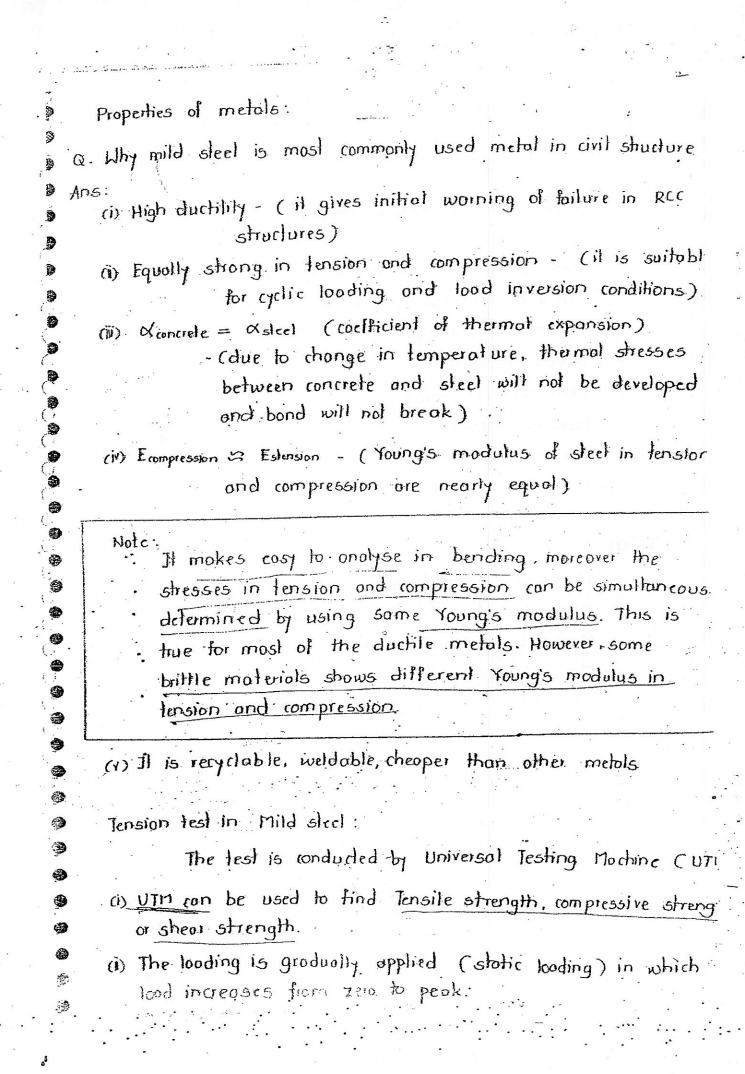 Properties of metals:
Q. Why mild steel is most commonly used metal in civil structure
Ans:
(i) High ductility - ( it gives initial warning of failure in RCC
structures )
(ii) Equally strong in tension and compression - ( it is suitabl
for cyclic loading and load inversion conditions.)
(iii) α concrete = α steel ( coefficient of thermal expansion )
- ( due to change in temperature, thermal stresses
between concrete and steel will not be developed
and bond will not break )
(iv) Ecompression ≈ Estension - ( Young's modulus of steel in tension
and compression are nearly equal )
Note:
It makes easy to analyse in bending, moreover the
stresses in tension and compression can be simultaneous
determined by using same Young's modulus. This is
true for most of the ductile metals. However, some
brittle materials shows different Young's modulus in
tension and compression.
(v) It is recyclable, weldable, cheaper than other metals
Tension test in Mild steel :
The test is conducted by Universal Testing Machine ( UTM
(i) UTM can be used to find Tensile strength, compressive streng
or shear strength.
(ii) The loading is gradually applied ( static loading ) in which
load increases from zero to peak.